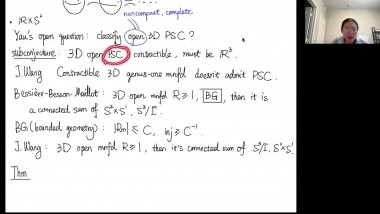 noncompact, complete
• ℝ×S²
Yau's open question: classify open 3D PSC?
subconjecture: 3D open PSC contractible, must be ℝ³.
J. Wang: Contractible 3D genus-one mnfd doesn't admit PSC.
Bessière-Besson-Maillot: 3D open mnfd R≥1, BG, then it is
a connected sum of S²×S¹, S³/Γ.
BG (bounded geometry): |Rm| ≤ C, inj ≥ C⁻¹.
J. Wang: 3D open mnfd R≥1, then it's connected sum of S³/Γ, S²×S¹.
Thm